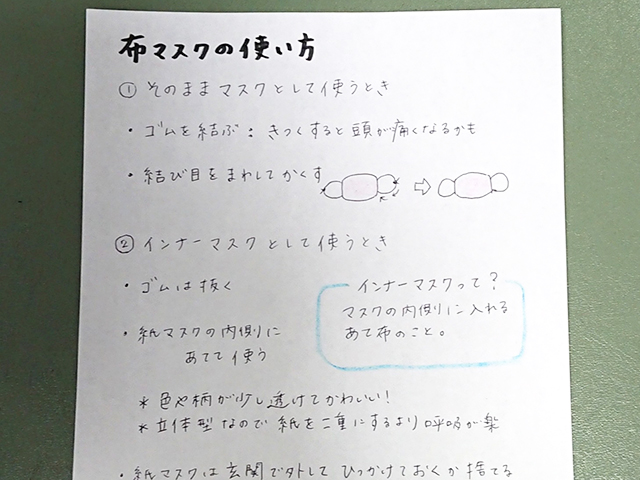 布マスクの使い方
① そのままマスクとして使うとき
・ゴムを結ぶ：きつくすると頭が痛くなるかも
・結び目をまわしてかくす
② インナーマスクとして使うとき
・ゴムは抜く
・紙マスクの内側に
あてて使う
インナーマスクって？
マスクの内側に入れる
あて布のこと。
* 色や柄が少し透けてかわいい！
* 立体型なので紙を二重にするより呼吸が楽
・紙マスクは玄関で外して ひっかけておくか捨てる